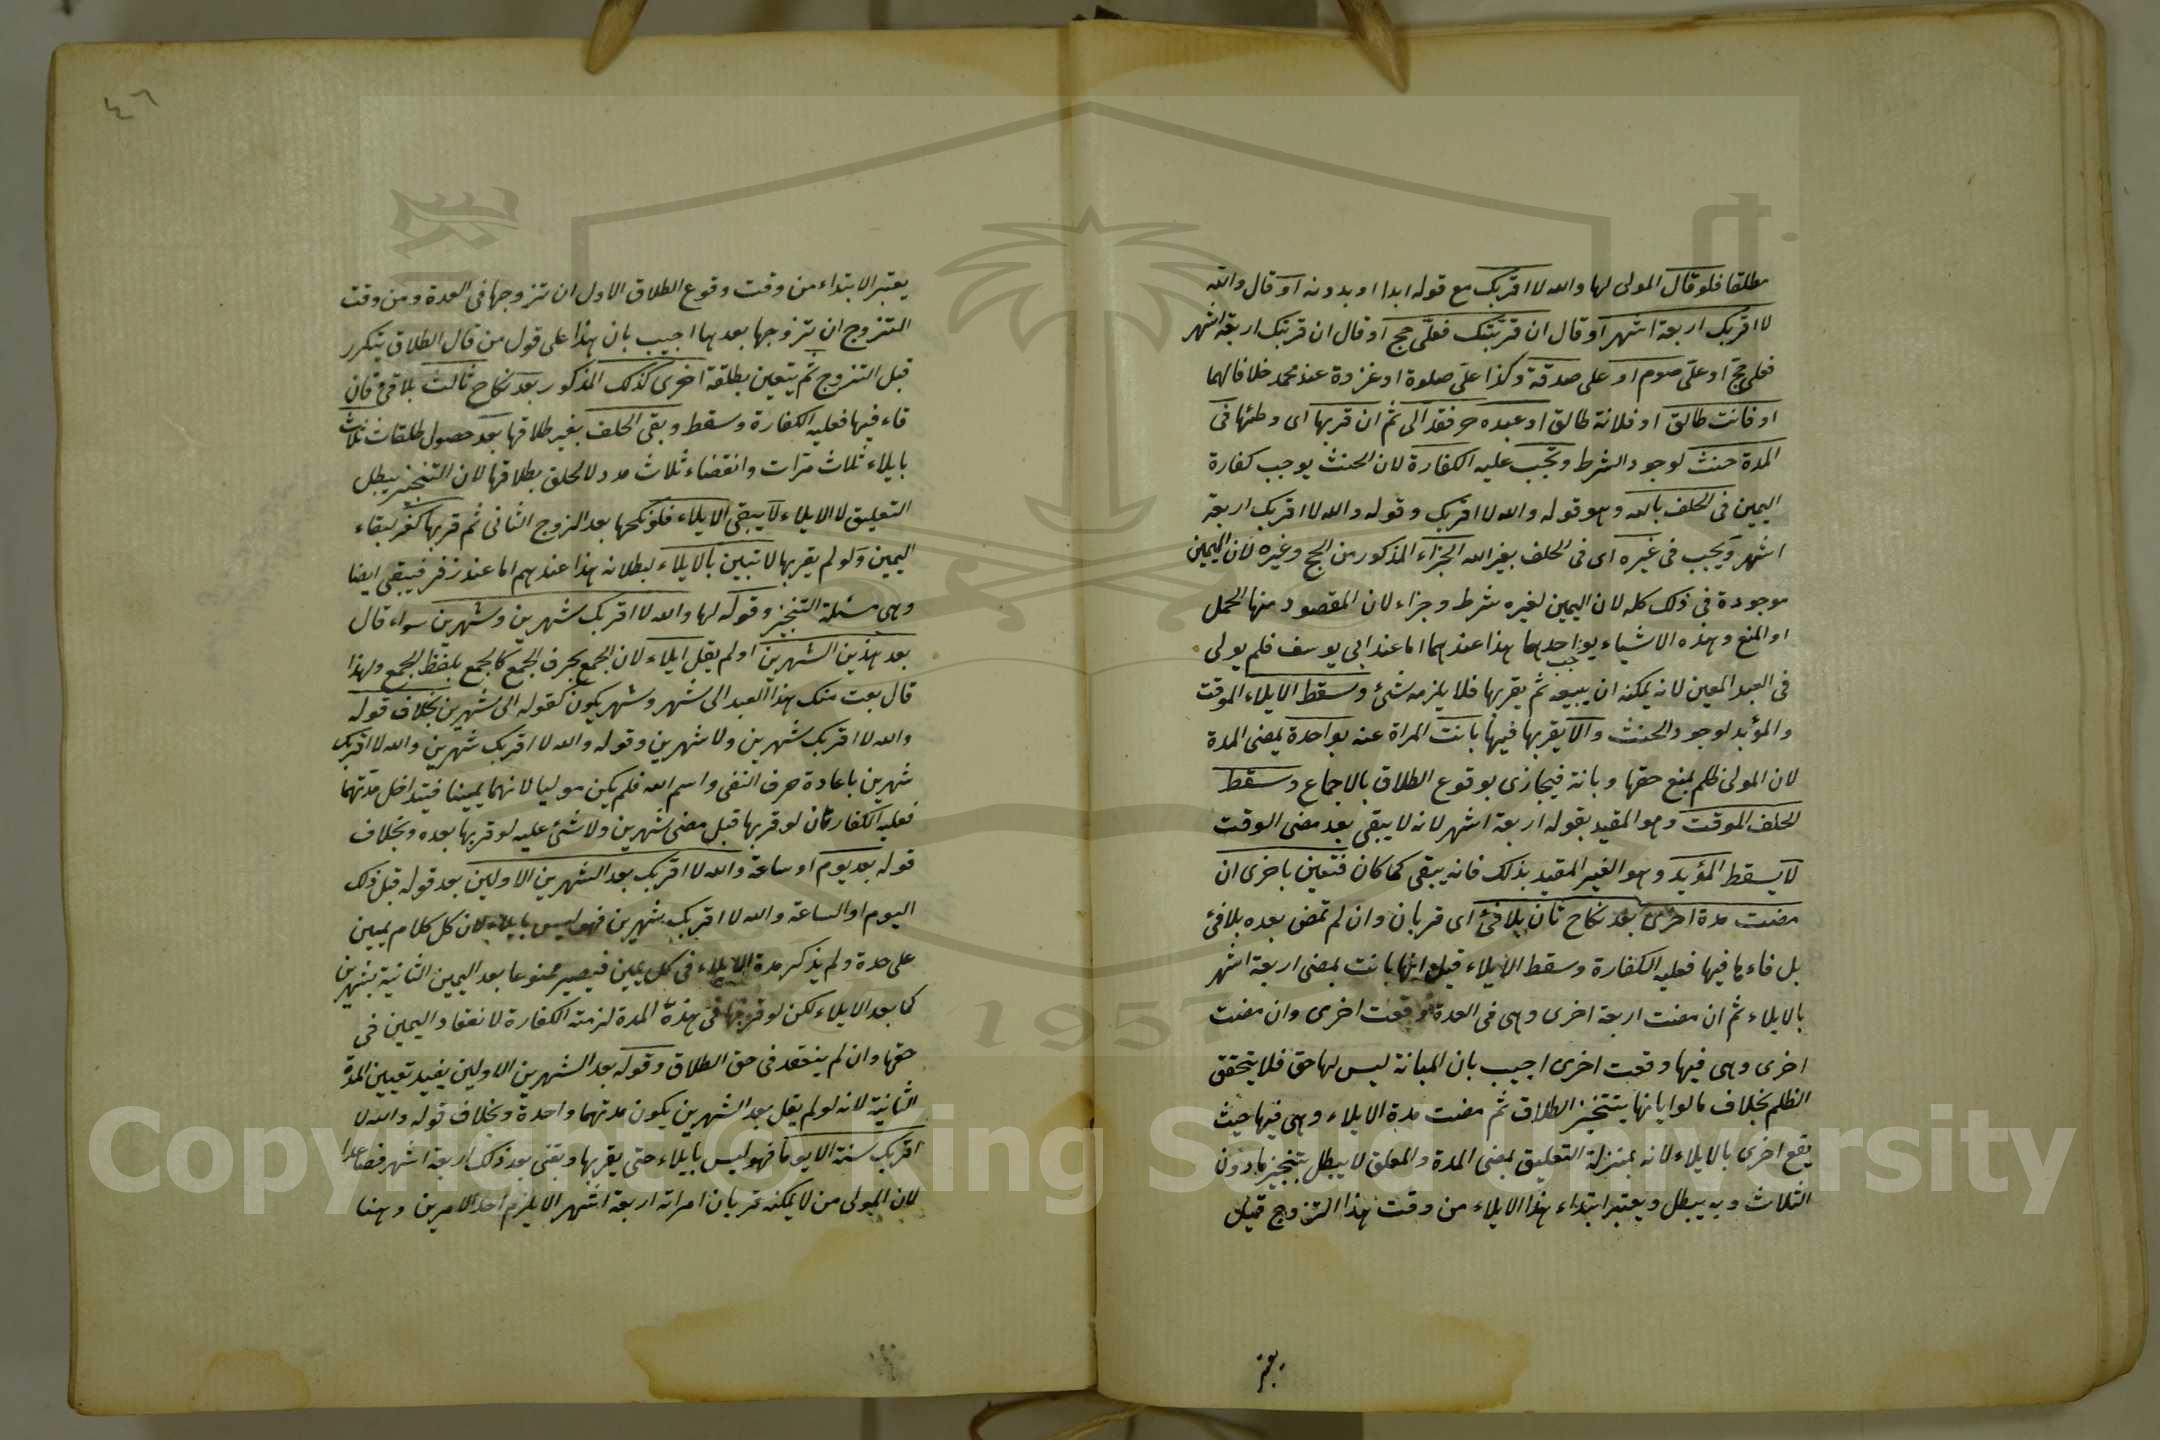 مطلقا فلو قال المولى لها والله لا اقربك مع قوله ابدا او بدونه او قال والله
لا اقربك اربعة اشهر او قال ان قربتك فعلى حج او قال ان قربتك اربعة اشهر
فعلى حج او على صوم او على صدقة وكذا على صلوة او غزوة عند محمد خلافا لهما
او فانت طالق او فلانة طالق او عبده حر فقد الى ثم ان قربها اى وطئها فى
المدة حنث لوجود الشرط وتجب عليه الكفارة لان الحنث يوجب كفارة
اليمين فى الحلف بالله وهو قوله والله لا اقربك وقوله والله لا اقربك اربعة
اشهر ويجب فى غيره اى فى الحلف بغير الله الجزاء المذكور من الحج وغيره لان اليمين
موجودة فى ذلك كله لان اليمين لغيره شرط وجزاء لان المقصود منها الحمل
او المنع وهذه الاشياء يوجب احدهما هذا عندهما اما عند ابى يوسف فلم يولى
فى العبد المعين لانه يمكنه ان يبيعه ثم يقربها فلا يلزمه شئ وسقط الايلاء الموقت
والمؤبد لوجود الحنث والا يقربها فيها بانت المراة عنه بواحدة بمضى المدة
لان المولى ظلم بمنع حقها وبانة فيجازى بوقوع الطلاق بالاجماع وسقط
الحلف الموقت وهو المقيد بقوله اربعة اشهر لانه لا يبقى بعد مضى الوقت
لا يسقط المؤبد وهو الغير المقيد بذلك فانه يبقى كما كان فتبين باخرى ان
مضت مدة اخرى بعد نكاح ثان بلا فئ اى قربان وان لم تمض بعده بلا فئ
بل فاء ها فيها فعليه الكفارة وسقط الايلاء قيل انها بانت بمضى اربعة اشهر
بالايلاء ثم ان مضت اربعة اخرى وهى فى العدة وقعت اخرى وان مضت
اخرى وهى فيها وقعت اخرى اجيب بان المبانة ليس لها حق فلا يتحقق
الظلم بخلاف ما لو ابانها بتنجيز الطلاق ثم مضت مدة الايلاء وهى فيها حيث
يقع اخرى بالايلاء لانه بمنزلة التعليق بمضى المدة والمعلق لا يبطل بتنجيز ما دون
الثلاث وبه يبطل ويعتبر ابتداء هذا الايلاء من وقت هذا التزوج قيل
يعتبر
٤٦
يعتبر الابتداء من وقت وقوع الطلاق الاول ان تزوجها فى العدة ومن وقت
التزوج ان تزوجها بعدها اجيب بان هذا على قول من قال الطلاق يتكرر
قبل التزوج ثم يتعين بطلقة اخرى كذلك المذكور بعد نكاح ثالث بلا قئ فان
فاء فيها فعليه الكفارة وسقط وبقى الحلف بغير طلاقها بعد حصول طلقات ثلاث
بايلاء ثلاث مرات وانقضاء ثلاث مدد لا لحلق بطلاقها لان التنجيز يبطل
التعليق لا الايلاء لا يبقى الايلاء فلو نكحها بعد الزوج الثانى ثم قربها كفر لبقاء
اليمين ولو لم يقربها لا تبين بالايلاء لبطلانه هذا عندهم اما عند زفر فيبقى ايضا
وهى مسئلة التنجيز وقوله لها والله لا اقربك شهرين وشهرين سواء قال
بعد هذين الشهرين او لم يقل ايلاء لان الجمع بحرف الجمع كالجمع بلفظ الجمع ولهذا
قال بعت منك هذا العبد الى شهر وشهر يكون كقوله الى شهرين بخلاف قوله
والله لا اقربك شهرين ولا شهرين وقوله والله لا اقربك شهرين والله لا اقربك
شهرين باعادة حرف النفى واسم الله فلم يكن موليا لانهما يمينا فيتداخل مدتهما
فعليه الكفارتان لو قربها قبل مضى شهرين ولا شئ عليه لو قربها بعده وبخلاف
قوله بعد يوم او ساعة والله لا اقربك بعد الشهرين الاولين بعد قوله قبل ذلك
اليوم او الساعة والله لا اقربك شهرين فهو ليس بايلاء لان كل كلام يمين
على حدة ولم يذكر مدة الايلاء فى كل يمين فيصير ممنوعا بعد اليمين الثانية بشهرين
كما بعد الايلاء لكن لو قربها فى هذه المدة لزمته الكفارة لانعقاد اليمين فى
حقها وان لم ينعقد فى حق الطلاق وقوله بعد الشهرين الاولين يفيد تعيين المدة
الثانية لانه لو لم يقل بعد الشهرين يكون مدتهما واحدة وبخلاف قوله والله لا
اقربك سنة الا يوما فهو ليس بايلاء حتى يقربها وبقى بعد ذلك اربعة اشهر فصاعدا
لان المولى من لا يمكنه قربان امراته اربعة اشهر الا يلزم احد الامرين وهنا
Copyright © King Saud University
1957